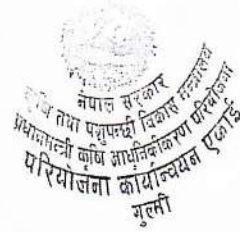 नेपाल सरकार
कृषि तथा पशुपन्छी विकास मन्त्रालय
प्रधानमन्त्री कृषि आधुनिकीकरण परियोजना
परियोजना कार्यान्वयन एकाई
गुल्मी